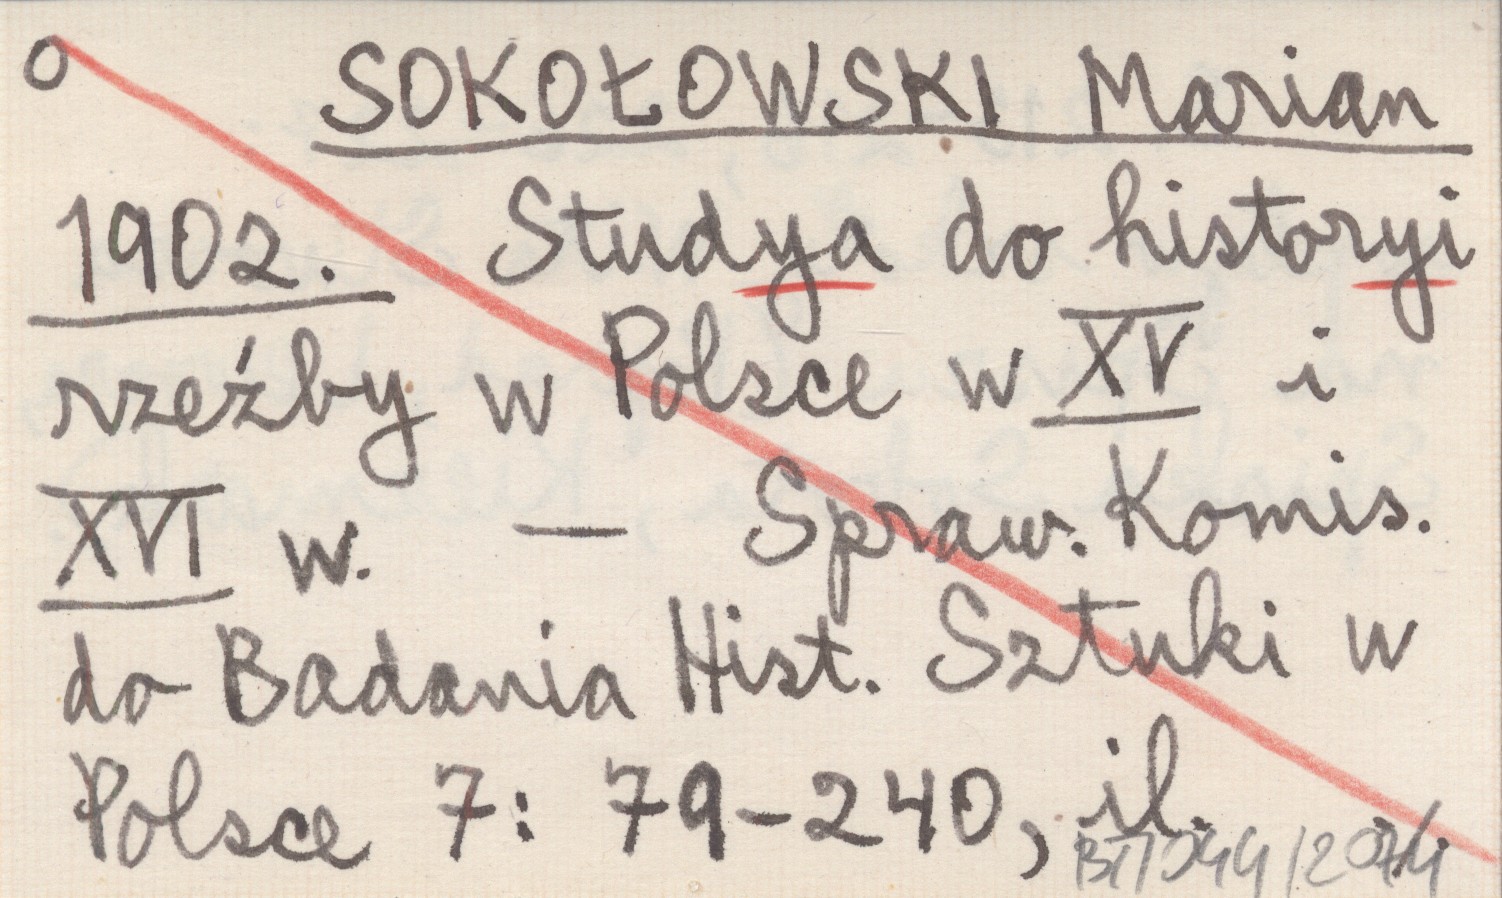 o SOKOŁOWSKI Marian
1902. Studya do historyi
rzeźby w Polsce w XV i
XVI w. — Spraw. Komis.
do Badania Hist. Sztuki w
Polsce 7: 79-240, il.